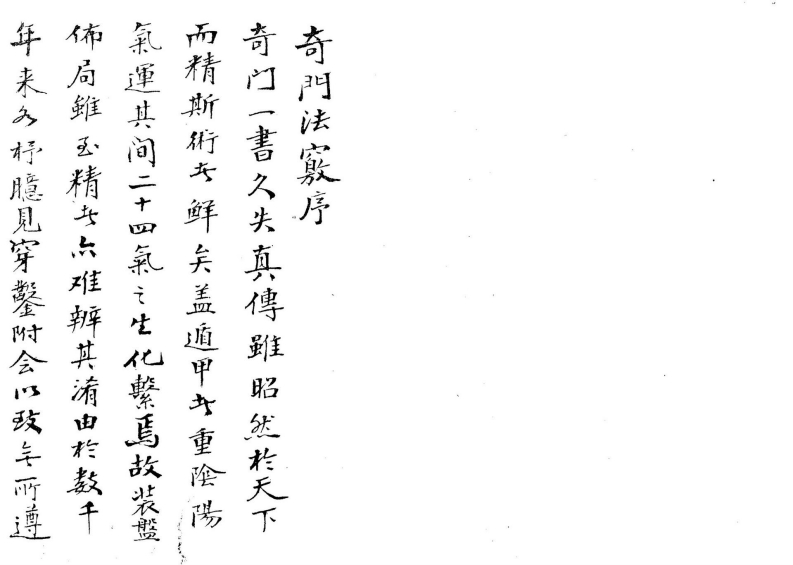 奇門法竅序
奇门一書久失真傳雖昭然於天下
而精斯術者鮮矣盖遁甲者重陰陽
氣運其间二十四氣之生化繫焉故装盤
佈局雖至精者亦难辨其淆由於数千
年来各抒臆見穿鑿附会以致无所遵